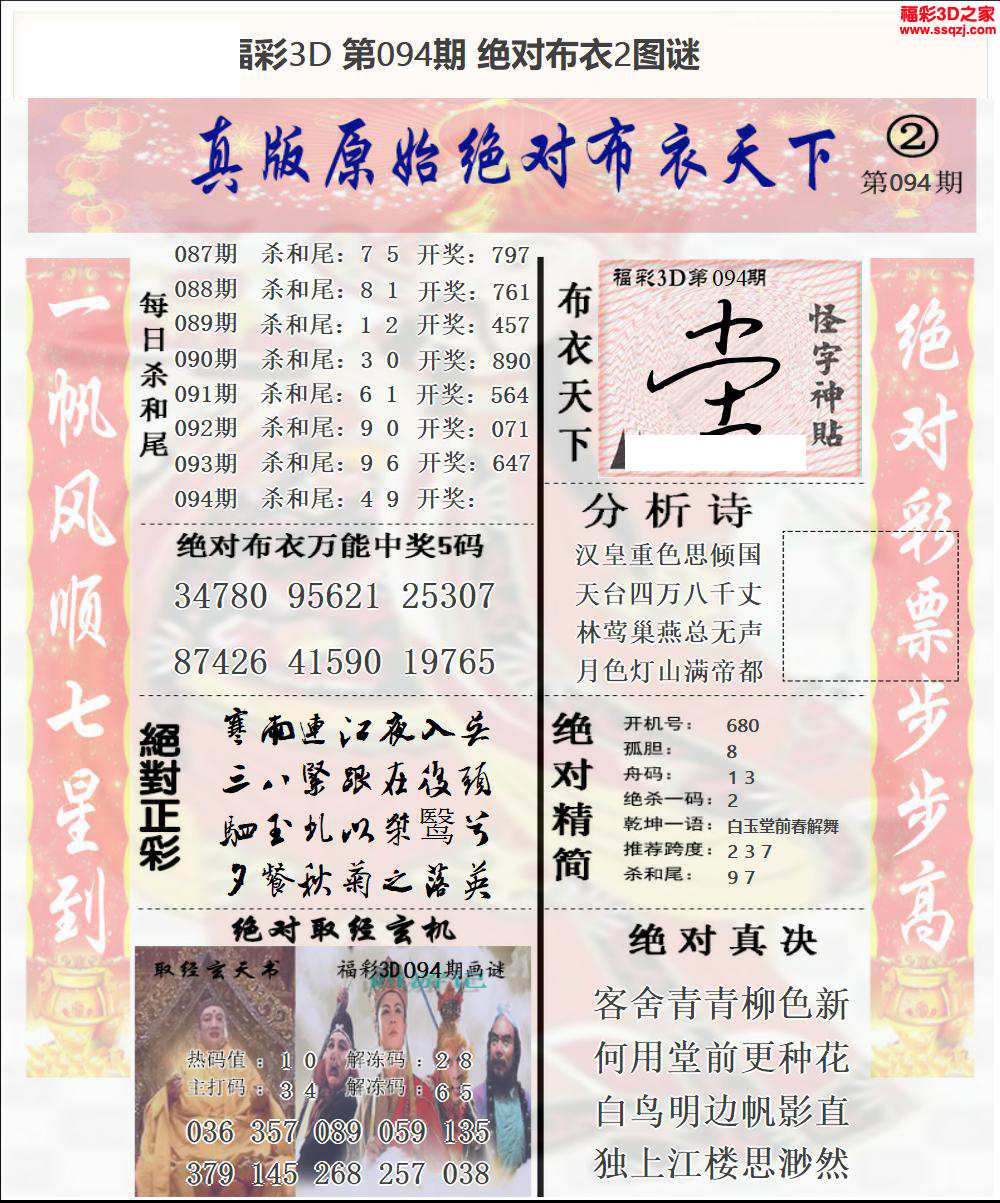 福彩3D之家
www.ssqzj.com
福彩3D 第094期 绝对布衣2图谜
真版原始绝对布衣天下
②
第094期
一帆风顺七星到
每日杀和尾
087期 杀和尾：7 5 开奖：797
088期 杀和尾：8 1 开奖：761
089期 杀和尾：1 2 开奖：457
090期 杀和尾：3 0 开奖：890
091期 杀和尾：6 1 开奖：564
092期 杀和尾：9 0 开奖：071
093期 杀和尾：9 6 开奖：647
094期 杀和尾：4 9 开奖：
绝对布衣万能中奖5码
34780 95621 25307
87426 41590 19765
絕對正彩
寒雨連江夜入吴
三八緊跟在後頭
駟玉虬以椉鹥兮
夕餐秋菊之落英
绝对取经玄机
取经玄天书
福彩3D094期画谜
热码值：1 0 解冻码：2 8
主打码：3 4 解冻码：6 5
036 357 089 059 135
379 145 268 257 038
布衣天下
福彩3D第094期
怪字神貼
分析诗
汉皇重色思倾国
天台四万八千丈
林莺巢燕总无声
月色灯山满帝都
绝对精简
开机号：680
孤胆：8
舟码：1 3
绝杀一码：2
乾坤一语：白玉堂前春解舞
推荐跨度：2 3 7
杀和尾：9 7
绝对真决
客舍青青柳色新
何用堂前更种花
白鸟明边帆影直
独上江楼思渺然
绝对彩票步步高